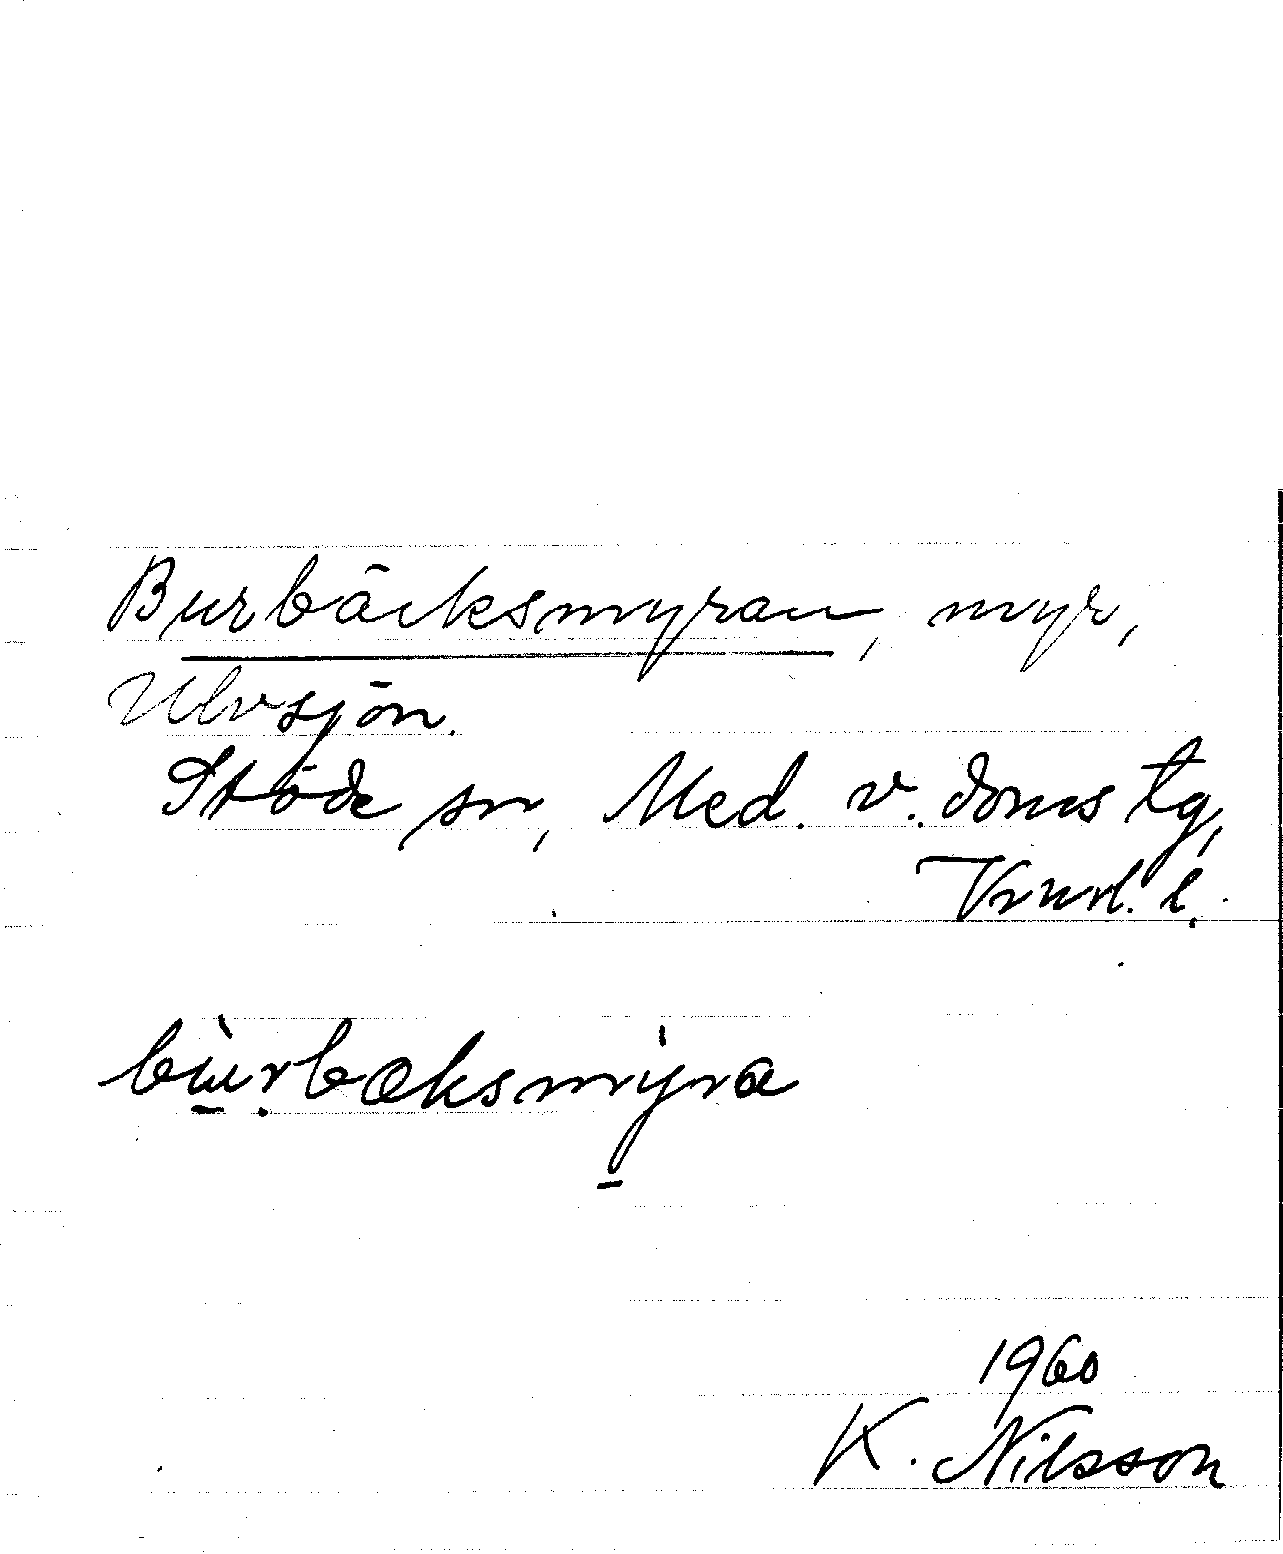 Burbäcksmyran, myr,
Ulvsjön.
Stöde sn, Med. v. doms tg,
Vnrl. l.
bùrbæksmyra
1960
K. Nilsson